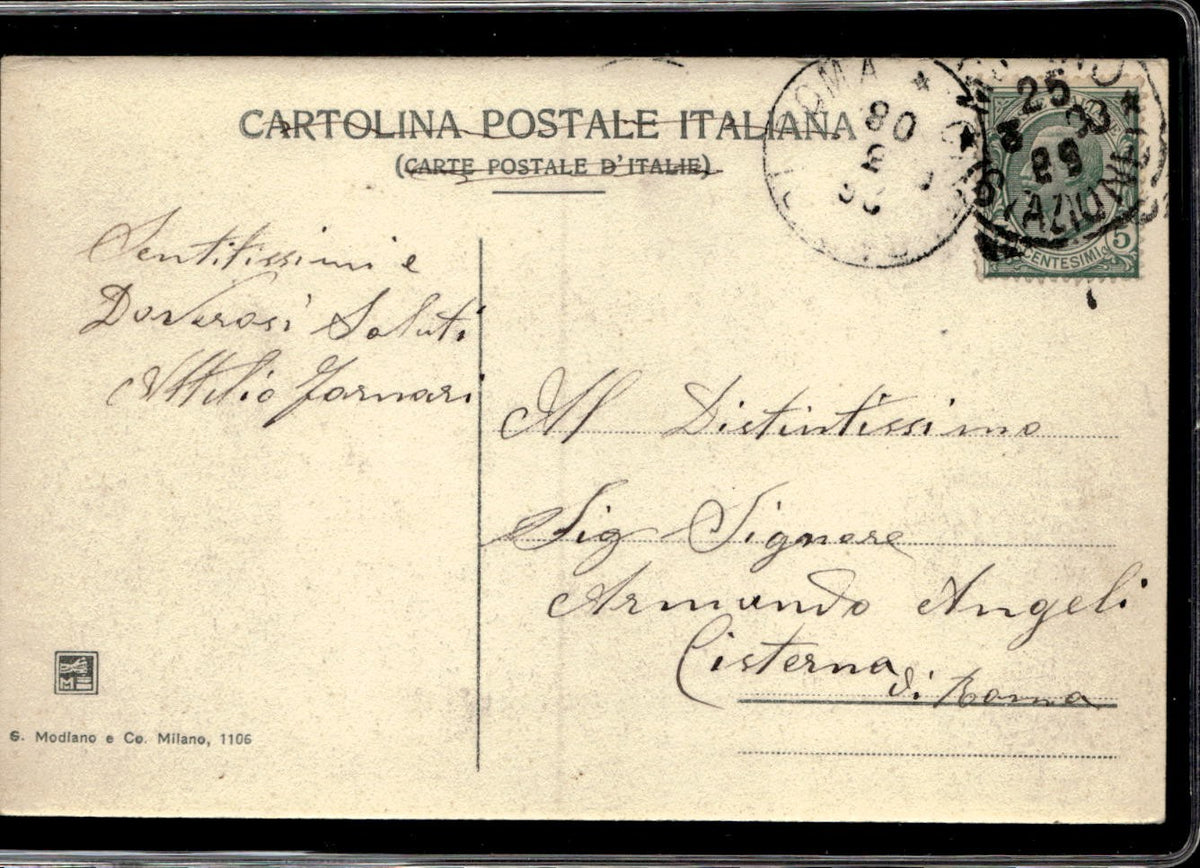 CARTOLINA POSTALE ITALIANA
(CARTE POSTALE D'ITALIE)
ROMA
80
25
CENTESIMI 5
Sentitissimi e
Doverosi Saluti
Attilio Fornari
Al Distintissimo
Sig Signore
Armando Angeli
Cisterna di Roma
M
S. Modiano e Co. Milano, 1106